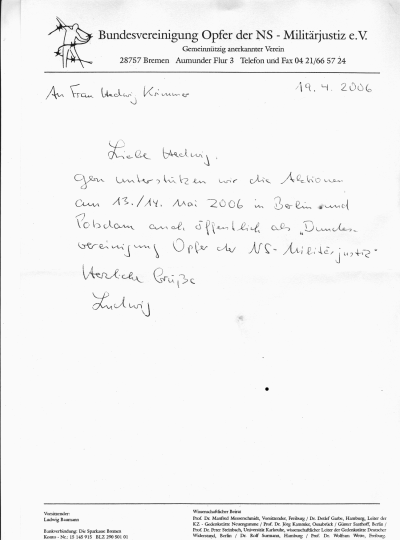 Bundesvereinigung Opfer der NS - Militärjustiz e.V.
Gemeinnützig anerkannter Verein
28757 Bremen Aumunder Flur 3 Telefon und Fax 04 21/66 57 24
19.4.2006
An Frau Hedwig
Liebe Hedwig,
gern unterstützen wir die Aktionen
am 13./14. Mai 2006 in Berlin und
Potsdam auch öffentlich als „Bundes-
vereinigung Opfer der NS-Militärjustiz"
Herzliche Grüße
Ludwig
Vorsitzender:
Ludwig Baumann
Bankverbindung: Die Sparkasse Bremen
Konto - Nr.: 10 145 915 BLZ 290 501 01
Wissenschaftlicher Beirat
Prof. Dr. Manfred Messerschmidt, Vorsitzender, Freiburg / Dr. Detlef Garbe, Hamburg, Leiter der
KZ - Gedenkstätte Neuengamme / Prof. Dr. Jörg Kammler, Osnabrück / Günter Saathoff, Berlin /
Prof. Dr. Peter Steinbach, Universität Karlsruhe, wissenschaftlicher Leiter der Gedenkstätte Deutscher
Widerstand, Berlin / Dr. Rolf Surmann, Hamburg / Prof. Dr. Wolfram Wette, Freiburg.